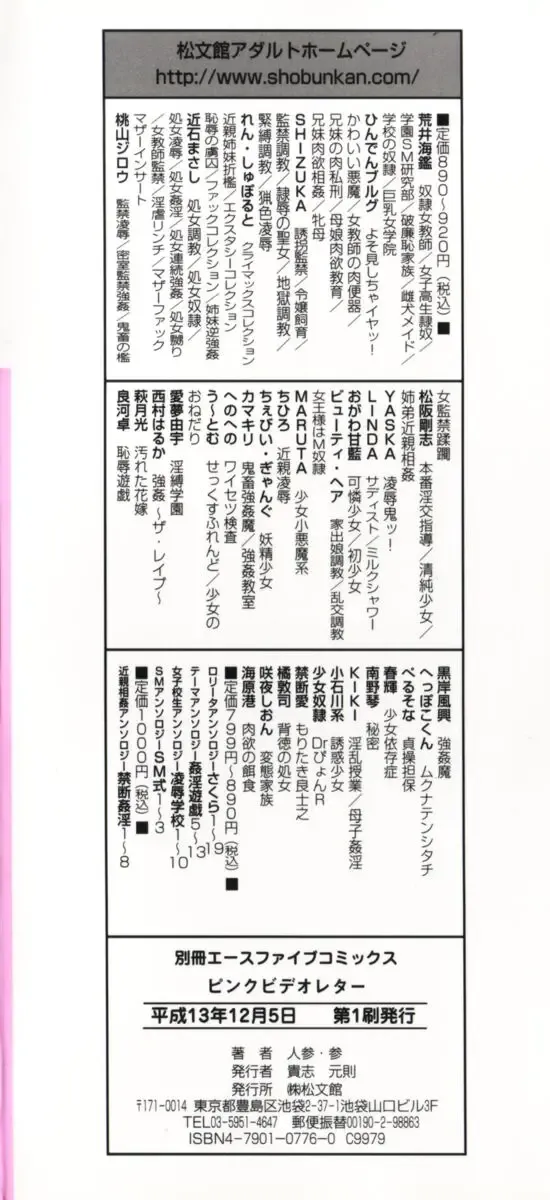 松文館アダルトホームページ
http://www.shobunkan.com/
■定価890〜920円（税込）■
荒井海鑑 奴隷女教師／女子高生隷奴／
学園SM研究部／破廉恥家族／雌犬メイド／
学校の奴隷／巨乳女学院
ひんでんブルグ よそ見しちゃイヤッ！
かわいい悪魔／女教師の肉便器／
兄妹の肉私刑／母娘肉欲教育／
兄妹肉欲相姦／牝母
SHIZUKA 誘拐監禁／令嬢飼育／
監禁調教／隷辱の聖女／地獄調教／
緊縛調教／猟色凌辱
れん・しゅぼると クライマックスコレクション
近親姉妹折檻／エクスタシーコレクション
恥辱の虜囚／ファックコレクション／姉妹逆強姦
近石まさし 処女調教／処女奴隷／
処女凌辱／処女姦淫／処女連続強姦／処女嬲り
／女教師監禁／淫虐リンチ／マザーファック
マザーインサート
桃山ジロウ 監禁凌辱／密室監禁強姦／鬼畜の檻
女監禁蹂躙
松阪剛志 本番淫交指導／清純少女／
姉弟近親相姦
YASKA 凌辱鬼ッ！
LINDA サディスト／ミルクシャワー
おがわ甘藍 可憐少女／初少女
ビューティ・ヘア 家出娘調教／乱交調教
女王様はM奴隷
MARUTA 少女小悪魔系
ちひろ 近親凌辱
ちぇびい・ぎゃんぐ 妖精少女
カマキリ 鬼畜強姦魔／強姦教室
へのへの ワイセツ検査
う〜とむ せっくすふれんど／少女の
おねだり
愛夢由宇 淫縛学園
西村はるか 強姦〜ザ・レイプ〜
萩月光 汚れた花嫁
良河卓 恥辱遊戯
黒岸風興 強姦魔
へっぽこくん ムクナテンシタチ
べるそな 貞操担保
春輝 少女依存症
南野琴 秘密
KIKI 淫乱授業／母子姦淫
小石川系 誘惑少女
少女奴隷 DrぴょんR
禁断愛 もりたき良士之
橘敦司 背徳の処女
咲夜しおん 変態家族
海原港 肉欲の餌食
■定価799円〜890円（税込）■
ロリータアンソロジーさくら1〜19
テーマアンソロジー姦淫遊戯5〜13
女子校生アンソロジー凌辱学校1〜10
SMアンソロジーSM式1〜3
■定価1000円（税込）■
近親相姦アンソロジー禁断姦淫1〜8
別冊エースファイブコミックス
ピンクビデオレター
平成13年12月5日 第1刷発行
著 者 人参・参
発行者 貴志 元則
発行所 ㈱松文館
〒171-0014 東京都豊島区池袋2-37-1池袋山口ビル3F
TEL03-5951-4647 郵便振替00190-2-98863
ISBN4-7901-0776-0 C9979